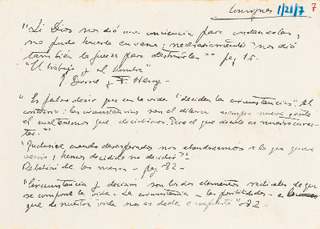 1/21/7 7
"Si Dios nos dió una conciencia para ordenarlas,
no pudo hacerlo en vano: necesariamente nos dió
también la fuerza para " pag. 15.
"El trabajo y el hombre"
" Es falso decir que en la vida "deciden las circunstancias". Al
contrario: las circunstancias son el dilema siempre nuevo, ante
el cual tenemos que decidirnos. Pero el que decide es nuestro carác-
ter."
aun cuando desesperados nos abandonamos a lo que quiera
venir, hemos decidido no decidir"
Rebelión de las masas - pag 82 -
"Circunstancia y decisión son los dos elementos radicales de que
se compone la vida. La circunstancia - las posibilidades - es lo
que de nuestra vida nos es dado e impuesto" 82 -